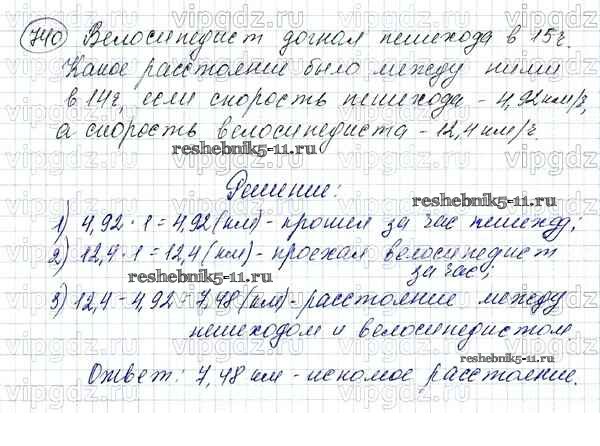 740 Велосипедист догнал пешехода в 15ч.
Какое расстояние было между ними
в 14ч, если скорость пешехода - 4,92км/ч,
а скорость велосипедиста - 12,4км/ч.
reshebnik5-11.ru
Решение:
reshebnik5-11.ru
1) 4,92 · 1 = 4,92 (км) - прошел за час пешеход;
2) 12,4 · 1 = 12,4 (км) - проехал велосипедист
за час;
reshebnik5-11.ru
3) 12,4 - 4,92 = 7,48 (км) - расстояние между
пешеходом и велосипедистом.
reshebnik5-11.ru
Ответ: 7,48 км - искомое расстояние.